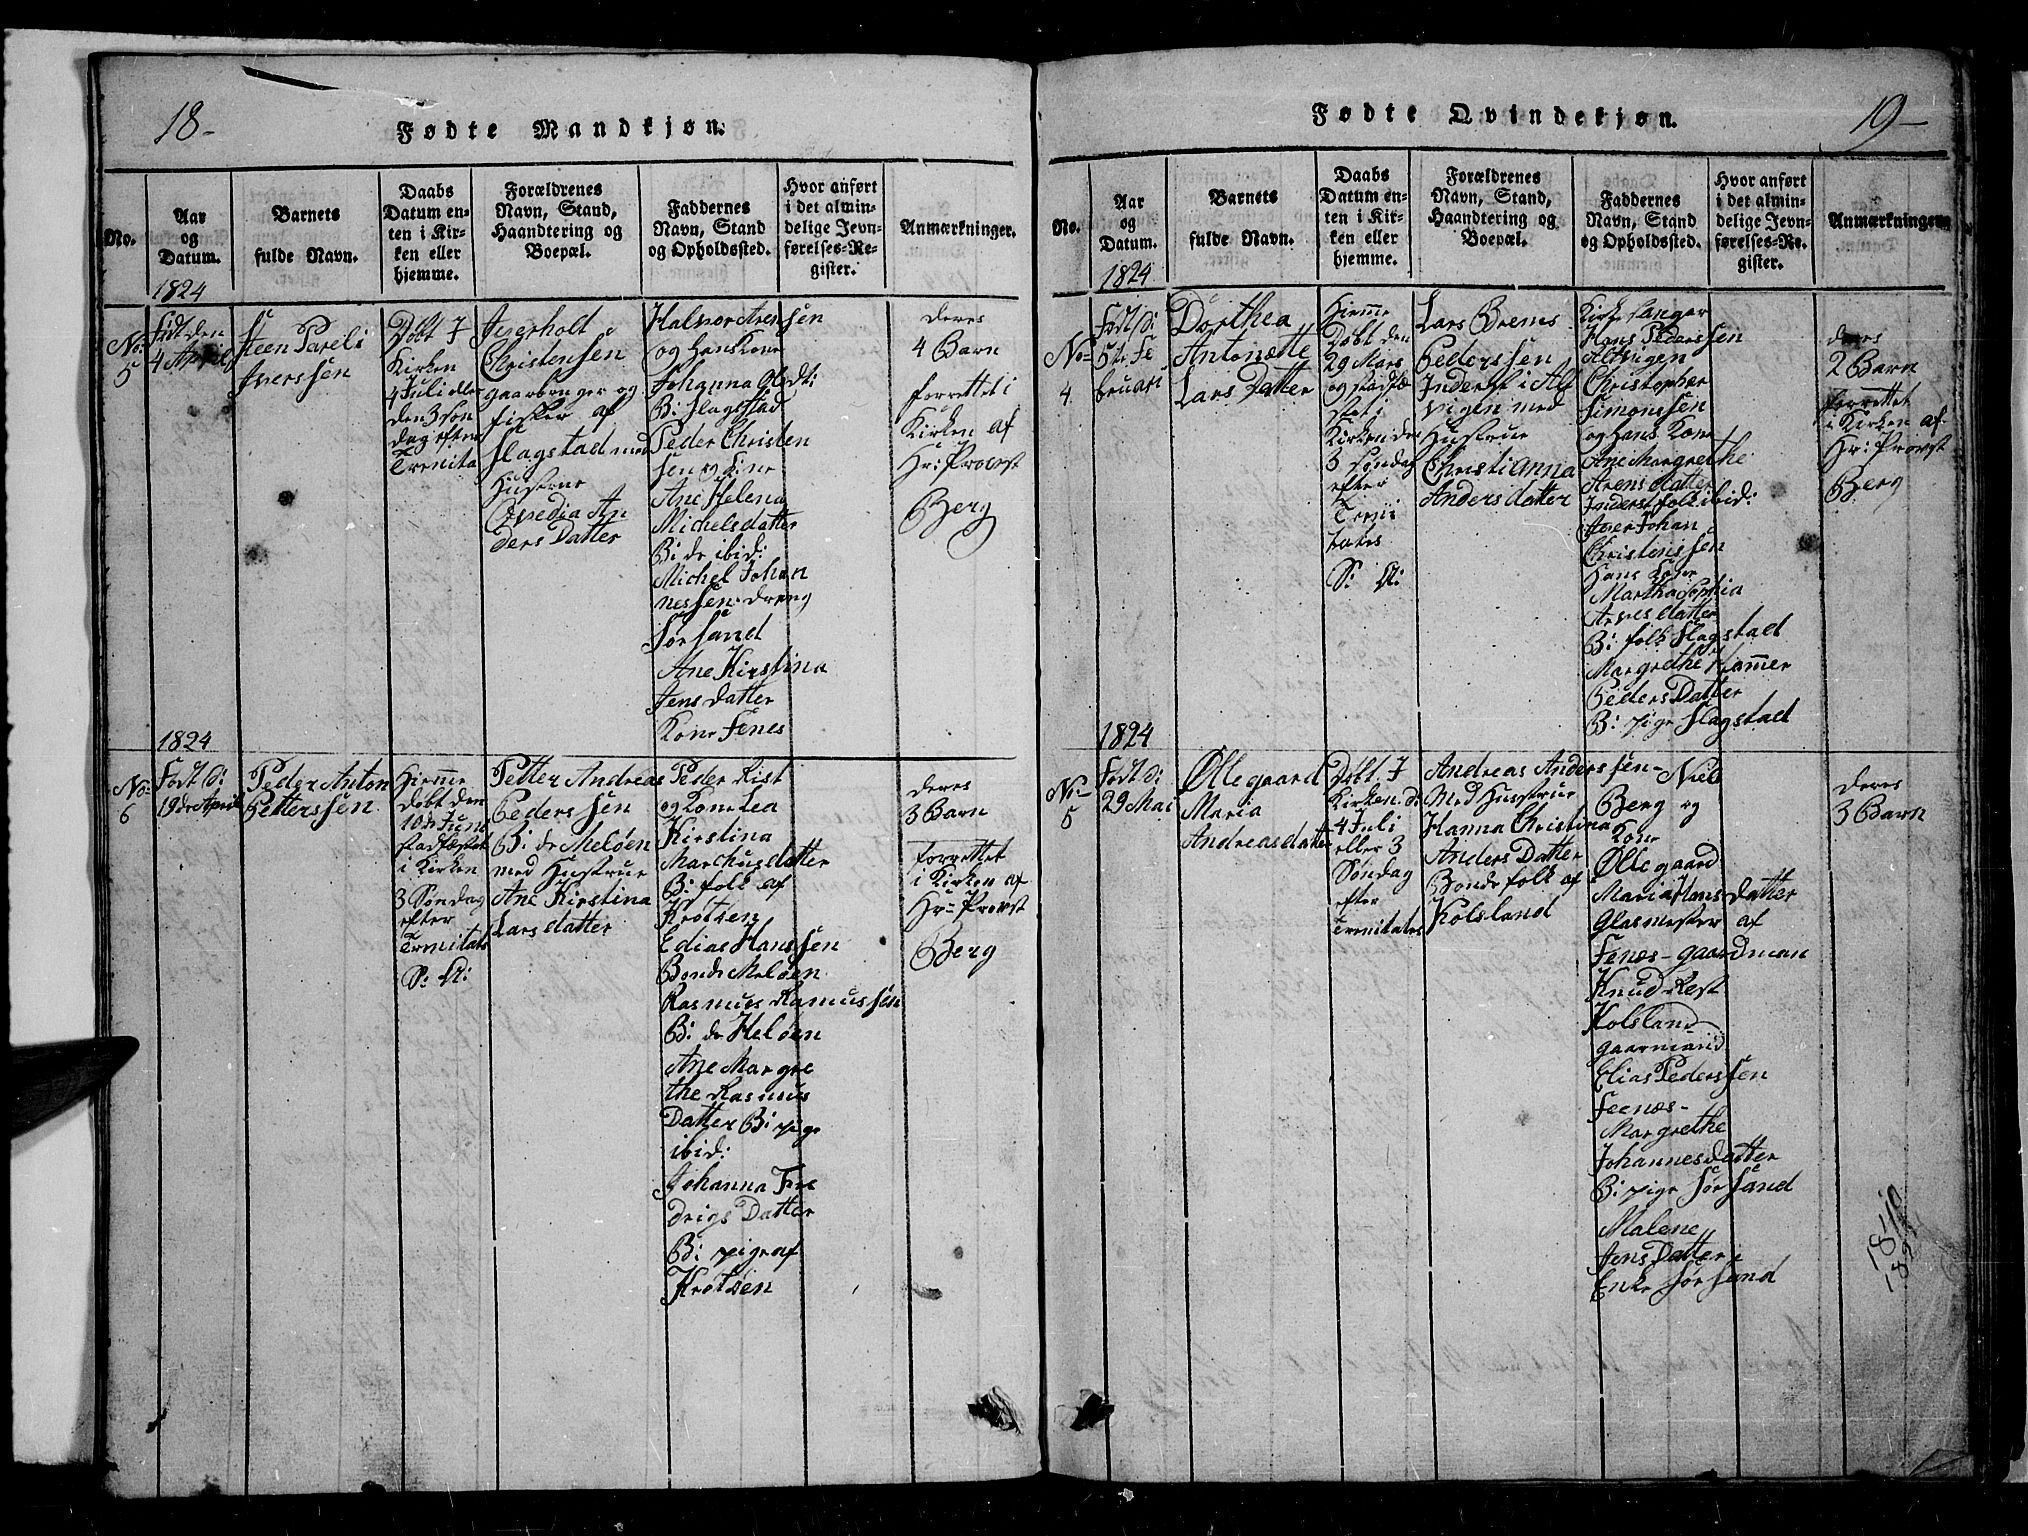 18-
Fødte Mandkjøn.
No.
Aar
og
Datum.
Barnets
fulde Navn.
Daabs
Datum en-
ten i Kir-
ken eller
hjemme.
Forældrenes
Navn, Stand,
Haandtering og
Boepæl.
Faddernes
Navn, Stand
og Opholdssted.
Hvor anført
i det almin-
delige Jevn-
førelses-Re-
gister.
Anmærkninger.
1824
No=
5
Født den
4 April
Steen Pareli
Iverssen
Døbt I
Kirken
4 Juli eller
den 3 Søn
dag efter
Trenita
Christensen
gaarbruger og
fisker af
Flagstad med
Hustrue
An
ders Datter
Halvor Arensen
og Hans Kone
Johanna
B: Flagstad
Peder Christen
sen og
Ane Helena
Michelsdatter
B: de ibid:
Michel Johan
nessen dreng
Sørsand
Ane Kirstina
Jens Datter
Kone Fenes
deres
4 Barn
forrettet i
Kirken af
Hr: Provst
Berg
1824
No=
6
Født d:
19de April
Peder Anton
Petterssen
Hiemme
døbt den
10de Juni
stadfæstet
i Kirken
3 Søndag
efter
Trenitats
S: A:
Petter Andreas
Pederssen
B: de Meløen
med Hustrue
Ane Kirstina
Larsdatter
Peder Rist
og Kone Lea
Kirstina
Marchusdatter
B: folk af
Krotøen
Edias Hanssen
Bonde Meløen
Rasmus Ramussen
B: de Heløen
Ane Margre
the Rasmus
Datter B: pige
ibid:
Johanna Fre
drigs Datter
B: pige af
Krotøen
deres
3 Barn
forrettet
i Kirken af
Hr= Provst
Berg
19-
Fødte Qvindekjøn.
No.
Aar
og
Datum.
Barnets
fulde Navn.
Daabs
Datum en-
ten i Kir-
ken eller
hjemme.
Forældrenes
Navn, Stand,
Haandtering og
Boepæl.
Faddernes
Navn, Stand
og Opholdssted.
Hvor anført
i det almin-
delige Jevn-
førelses-Re-
gister.
Anmærkninger.
1824
No=
4
Født d:
5te Fe
bruari
Dorthea
Antonette
Lars Datter
Hiemme
Døbt den
29 Mars
og stadfæ
stet i
Kirken den
3 Søndag
efter
Trini
tates
S: A:
Lars Brems
Pederssen
Inderst i Al
vigen med
Hustrue
Christianna
Anders datter
Kirkesanger
Hans Pederssen
Alsvigen
Christopher
Simonssen
og Hans Kone
Ane Margrethe
Arens datter
Inderst folk ibid:
Iver Johan
Christenssen
Hans Kone
Martha Sophia
Arnes datter
B: folk Flagstad
Margrethe Hammer
Peders Datter
B: pige Flagstad
deres
2 Barn
forrettet
i Kirken af
Hr: Provst
Berg
1824
No=
5
Født d:
29 Mai
Ollegaard
Maria
Andreasdatter
Døbt I
Kirken d:
4 Juli
eller 3
Søndag
efter
Trenitates
Andreas Anderssen
Med Hustrue
Hanna Christina
Anders Datter
Bondefolk af
Kolsland
Niels
Berg og
Kone
Ollegaard
Maria Hans datter
Glasmester af
Fenes- gaardman
Knud Rest
Kolsland
gaarmand
Elias Pederssen
Feenæs-
Margrethe
Johannesdatter
B: pige Sørsand
Malene
Jens Datter
Enke Sørsand
deres
3 Barn